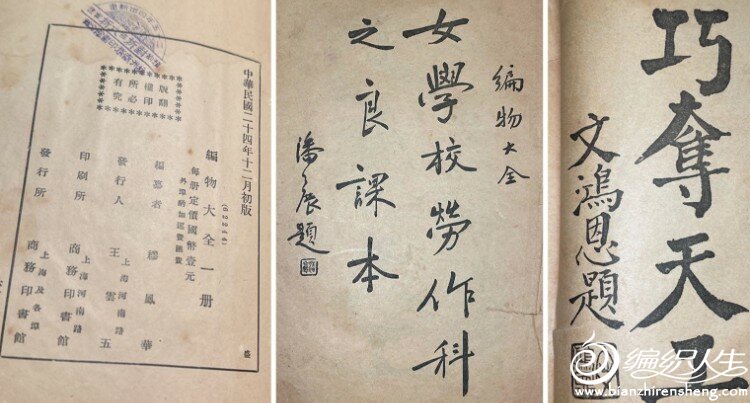 中華民國二十四年十二月初版
翻印必究
版權所有
編物大全一册
每册定價國幣壹元
外埠酌加運費匯費
編纂者 繆鳳華
發行人 王雲五
上海河南路
印刷所 商務印書館
上海河南路
發行所 商務印書館
上海及各埠
編物大全
女學校勞作科
之良課本
潘展題
巧奪天工
文鴻恩題
编织人生
www.bianzhirensheng.com